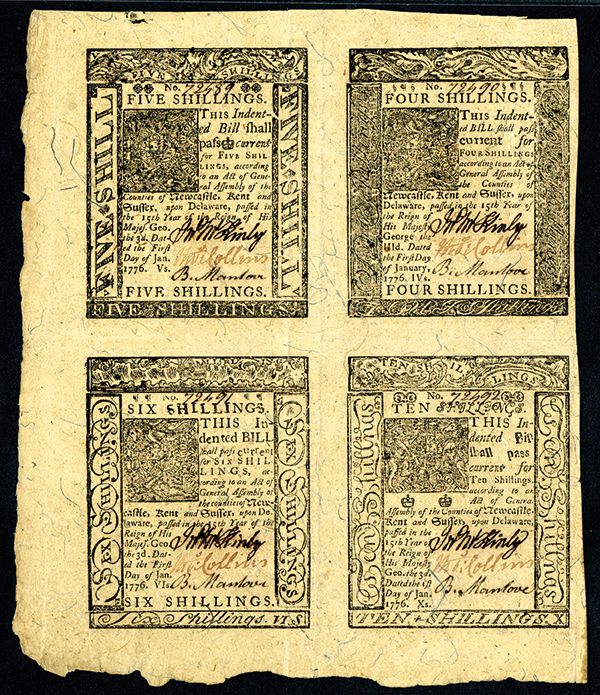 FIVE SHILLINGS
No. 72489
FIVE SHILLINGS.
FIVE SHILL
FIVE SHILL
THIS Indent-
ed Bill shall
pass current
for FIVE SHIL
LINGS, according
to an Act of Gene-
ral Assembly of the
Counties of Newcastle, Kent and
Sussex, upon Delaware, passed in
the 15th Year of the Reign of His
Majesty. Geo.
the 3d. Dat-
ed the First
Day of Jan.
1776. Vs.
Jno McKinly
Collins
B. Manlove
FIVE SHILLINGS.
FIVE SHILLINGS.
No. 72490
FOUR SHILLINGS.
THIS Indent-
ed BILL shall pass
current for
FOUR SHILLINGS
according to an Act of
General Assembly of
the Counties of
Newcastle, Kent and Sussex, upon
Delaware, passed in the 15th Year of
the Reign of
His Majesty
George the
IIId. Dated
the First Day
of January,
1776. IVs.
Jno McKinly
Collins
B. Manlove
FOUR SHILLINGS.
No. 72491
SIX SHILLINGS.
Six Shillings
Six Shillings
THIS In-
dented BILL
shall pass current
for SIX SHIL-
LINGS, ac-
cording to an Act of
General Assembly of
the counties of New-
castle, Kent and Sussex, upon Del-
aware, passed in the 15th Year of the
Reign of His
Majesty. Geo.
the 3d. Dat-
ed the First
Day of Jan.
1776. VIs.
Jno McKinly
Collins
B. Manlove
SIX SHILLINGS.
Six Shillings. VI S.
TEN SHILLINGS
No. 72492
TEN SHILLINGS.
Ten Shillings
Ten Shillings
THIS In-
dented Bill
shall pass
current for
Ten Shillings,
according to an
Act of General
Assembly of the Counties of Newcastle,
Kent and Sussex, upon Delaware,
passed in the
15th Year of
the Reign of
His Majesty
Geo. the 3d.
Dated the 1st
Day of Jan.
1776. Xs.
Jno McKinly
Collins
B. Manlove
TEN SHILLINGS. X